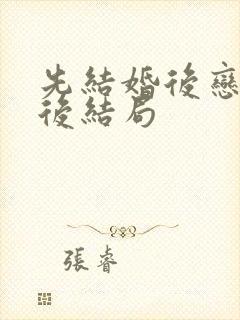 先結婚後戀
後結局
張睿